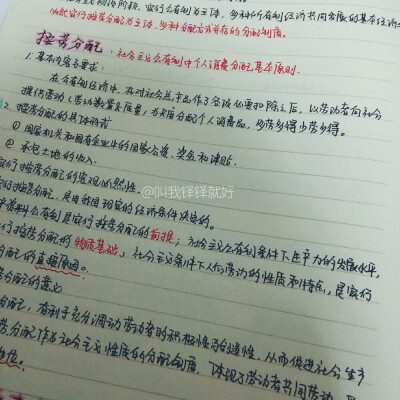 义初级阶段,实行公有制为主体,多种所有制经济共同发展的基本经济
实行按劳分配为主体,多种分配方式并存的分配制度。
按劳分配:社会主义公有制中个人消费品分配基本原则.
1.基本内容与要求:
在公有制经济中,在对社会总产品作了各项必要扣除之后,以劳动者向社会
提供劳动(劳动数量及质量,为尺度分配个人消费品,多劳多得少劳少得。
2.按劳分配的具体形式
① 国家机关和国有企业中的国家公资、奖金和津贴.
② 承包土地的收入.
行按劳分配的客观必然性.
行按劳分配,是由我国现实的经济条件决定的.
料公有制是实行按劳分配的前提;社会主义公有制条件下生产力的发展水平,
行按劳分配的物质基础,社会主义条件下人们劳动的性质和特点,是实行
分配的直接原因。
劳分配的意义
分配,有利于充分调动劳动者的积极性与创造性,从而促进社会生
劳分配作为社会主义性质的分配制度,体现了劳动者共同劳动,
地位.
@叫我锋锋就好